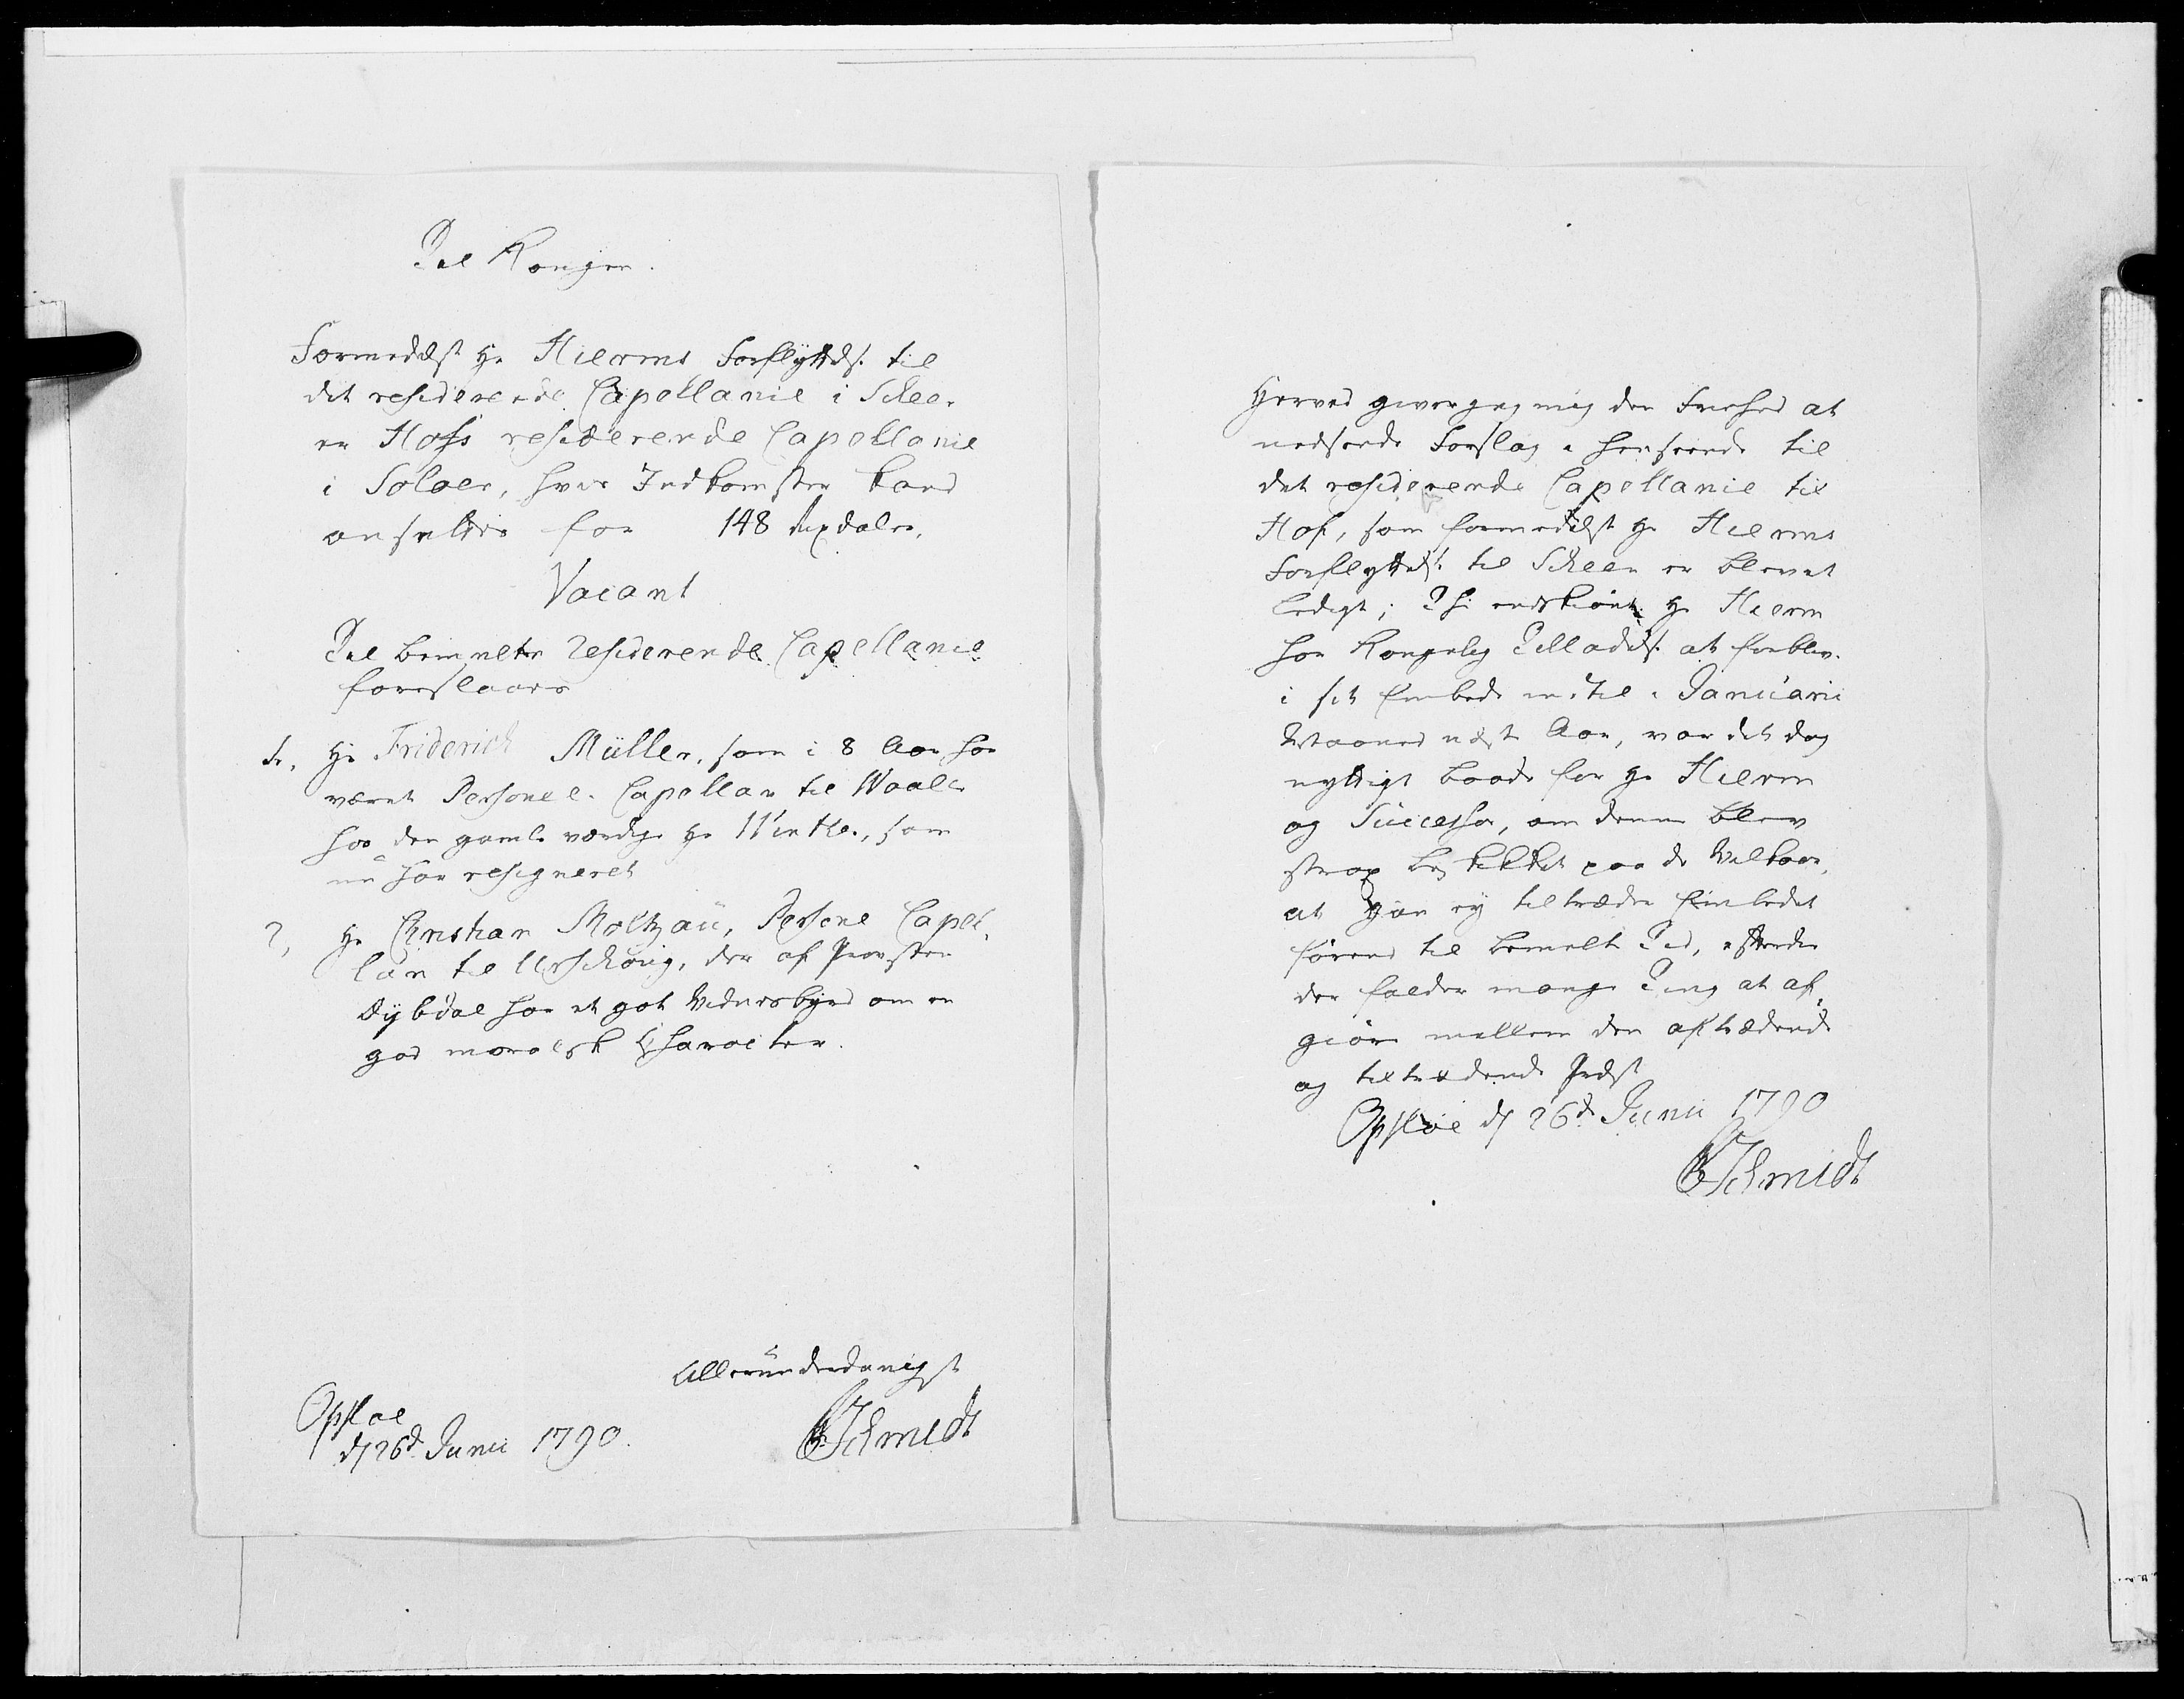 Til Kongen.
Formedelst Hr Hierms Forflyttelse til
det residerende Capellanie i Skee-
er Hofs residerende Capellanie
i Soløer, hvis Indkomster kand
ansættes for 148 Rixdaler,
Vacant
Til bemelte residerende Capellanie
foreslaaes
1, Hr Friderich Müller, som i 8 Aar har
været Personel Capellan til Waaler
hos den gamle værdige Hr Winther, som
nu har resigneret
2, Hr Christian Moltzau, Personel Capel-
lan til Urschoug, der af Provsten
Dybdal har et got Vidnesbyrd om en
god moralsk Character.
Allerunderdanigst
Opsloe
d 26d Junii 1790.
Schmidt
Herved giver jeg mig den Friehed at
nedsende Forslag i Henseende til
det residerende Capellanie til
Hof, som formedelst Hr Hierms
Forflyttelse til Skeen er blevet
ledigt; Thi endskiønt Hr Hierm
har Kongelig Tilladelse at forblive
i sit Embede indtil Januarii
Maaned næste Aar, var det dog
nyttigt baade for Hr Hierm
og Successor, om denne blev
strax beskikket paa de Vilkaar,
at han ey tiltræder Embedet
førend til bemelte Tid, efterdi
der falder mange Ting at af-
giøre mellem den aftrædende
og tiltrædende Præst
Opsloe d 26d Junii 1790
Schmidt